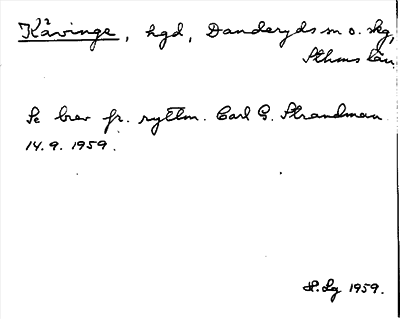 Kävinge, hgd, Danderyds sn o. skg,
Sthms län.
Se brev fr. ryttm. Carl G. Strandman
14.9. 1959.
H. Lg 1959.